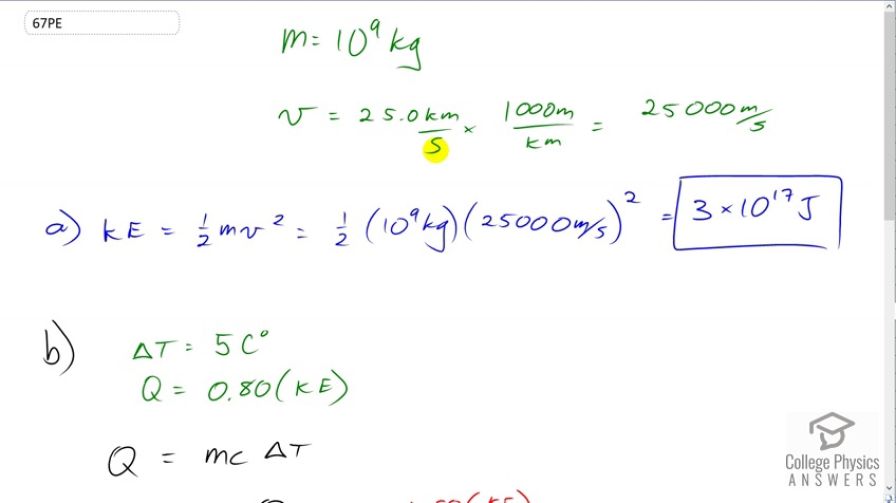 67PE
m = 10⁹ kg
v = 25.0 km/s × 1000m/km = 25000 m/s
a) KE = 1/2 mv² = 1/2 (10⁹kg)(25000m/s)² = 3 × 10¹⁷ J
b) ΔT = 5 C°
Q = 0.80(KE)
Q = mc ΔT
College Physics
ANSWERS